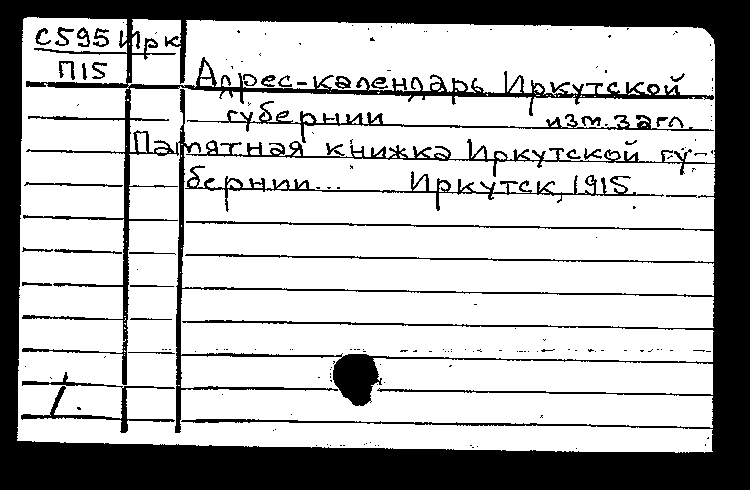 С595 Ирк
П15
Адрес-календарь Иркутской
губернии изм. загл.
Памятная книжка Иркутской гу-
бернии... Иркутск, 1915.
1.